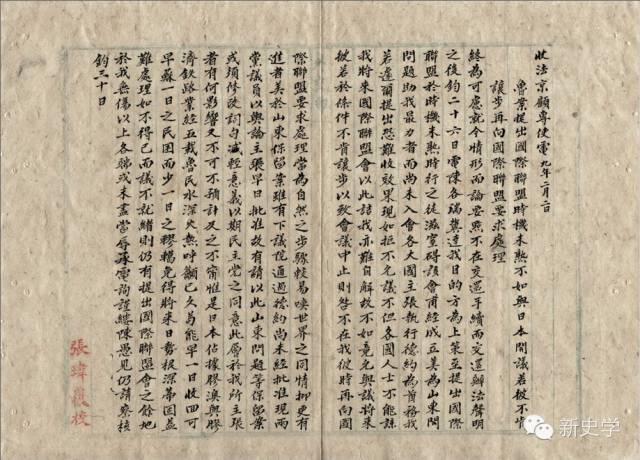 收法京顧專使電 九年二月二日
魯案提出國際聯盟時機未熟不如與日本開議若彼不肯
讓步再向國際聯盟要求處理
終為可慮就令情形而論要点不在交還手續而交還辦法聲明
之後鈞二十六日電陳各端冀達我目的方為上策至提出國際
聯盟於時機未熟時行之徒滋窒碍該會甫經成立美為山東問
題助我最力者而尚未入會各大國主張執行德約為前務我
若遽爾提出恐難收效果現如拒不允議不但各國人士不能諒
我將來國際聯盟會以此詰我亦難自解故不如竟允與議將來
彼若於條件不肯讓步以致會議中止則咎不在我彼時再向國
際聯盟要求處理當為自然之步驟較易喚世界之同情抑更有
進者美於山東保留案雖有下議院通過德約尚未經批准現兩
黨議員以輿論主張早日批准故有請以此山東問題等保留案
或須修改詞句減輕意義以期民主黨之同意此層於我所主張
者有何影響又不可不預計及之不甯惟是日本佔據膠澳與膠
濟鉄路業經五載魯民水深火熱呼籲已久曷能早一日收回可
早蘇一日之民困而少一日之轇轕免得將來日勢根深蒂固益
難處理如不得已而議不就緒則仍有提出國際聯盟會之餘地
於我無傷以上各勝或未盡當辱承電詢謹縷陳愚見仍請察核
鈞三十日
張瑋覆校
新史学